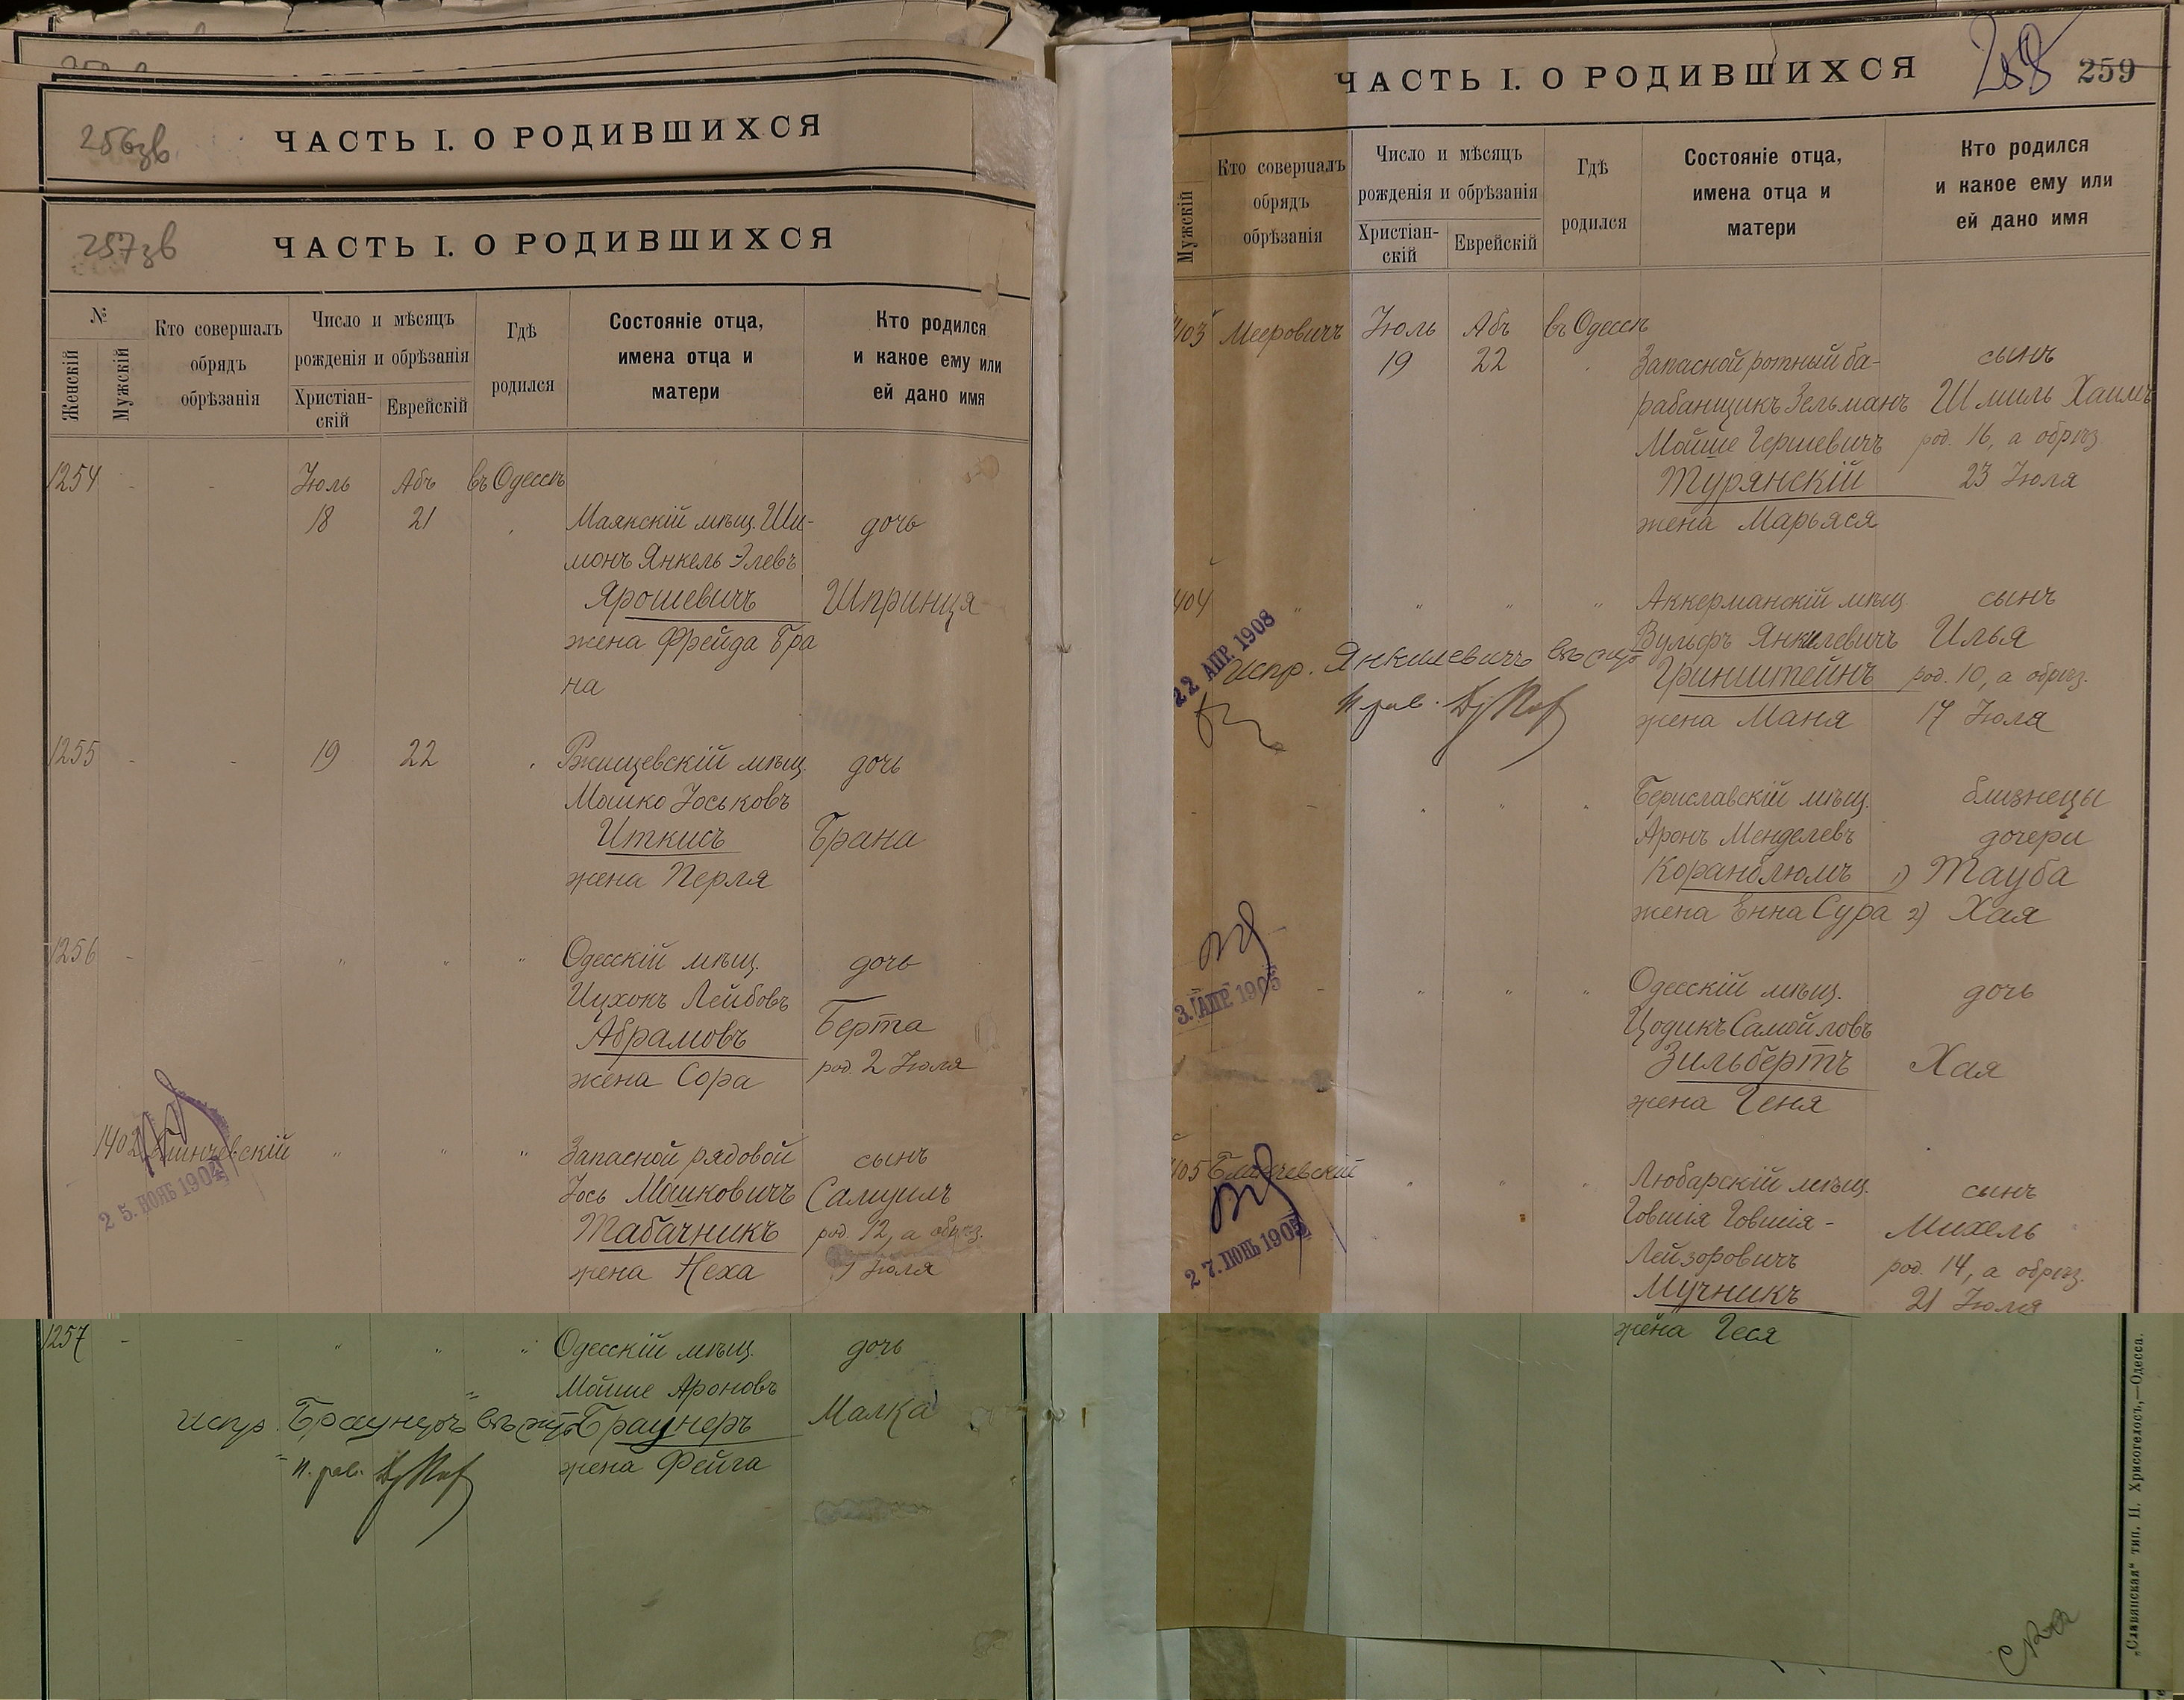 256зв
ЧАСТЬ I. О РОДИВШИХСЯ
257зв
ЧАСТЬ I. О РОДИВШИХСЯ
№
Женскій
Мужскій
Кто совершалъ
обрядъ
обрѣзанія
Число и мѣсяцъ
рожденія и обрѣзанія
Христіан-
скій
Еврейскій
Гдѣ
родился
Состояніе отца,
имена отца и
матери
Кто родился
и какое ему или
ей дано имя
1254 - - Іюль Абъ въ Одессѣ
18 21 Маякскій мѣщ. Ши-
монъ Янкель Элевъ
Ярошевичъ
жена Фрейда Бра
на
дочь
Шпринця
1255 - - 19 22 Ржищевскій мѣщ.
Мошко Іоськовъ
Иткисъ
жена Перля
дочь
Брана
1256 - - " " " Одесскій мѣщ.
Ицхокъ Лейбовъ
Абрамовъ
жена Сора
дочь
Берта
род. 2 Іюля
1402 " " " Запасной рядовой
Іось Мошковичъ
Табачникъ
жена Неха
сынъ
Самуилъ
род. 12, а обрѣз.
Іюля
25. НОЯБ 1904
1257 - - " " " Одесскій мѣщ.
Мойше Ароновъ
Браунеръ
жена Фейга
дочь
Малка
испр. "Браунеръ"
н. рав.
ЧАСТЬ I. О РОДИВШИХСЯ
258 259
Мужскій
Кто совершалъ
обрядъ
обрѣзанія
Число и мѣсяцъ
рожденія и обрѣзанія
Христіан-
скій
Еврейскій
Гдѣ
родился
Состояніе отца,
имена отца и
матери
Кто родился
и какое ему или
ей дано имя
403 Мееровичъ Іюль Абъ въ Одессѣ
19 22 Запасной ротный ба-
рабанщикъ Зельманъ
Мойше Гершевичъ
Турянскій
жена Марьяся
сынъ
Шмиль Хаимъ
род. 16, а обрѣз.
23 Іюля
404 " " " " Аккерманскій мѣщ.
Вульфъ Янкелевичъ
Гринштейнъ
жена Маня
сынъ
Илья
род. 10, а обрѣз.
17 Іюля
22 АПР. 1908
Испр. Янкелевичъ
н рав.
- " " " Бериславскій мѣщ.
Аронъ Менделевъ
Коранблюмъ
жена Енна Сура
близнецы
дочери
1) Тауба
2) Хая
3. АПР 1905
- " " " Одесскій мѣщ.
Цодикъ Самойловъ
Зильбертъ
жена Геня
дочь
Хая
405 Блинчевскій " " " Любарскій мѣщ.
Говшія Говшія-
Лейзоровичъ
Мучникъ
жена Геся
сынъ
Михель
род. 14, а обрѣз.
21 Іюля
27. ІЮНЬ 1905
„Славянская“ тип. Н. Хрисогелосъ,—Одесса.